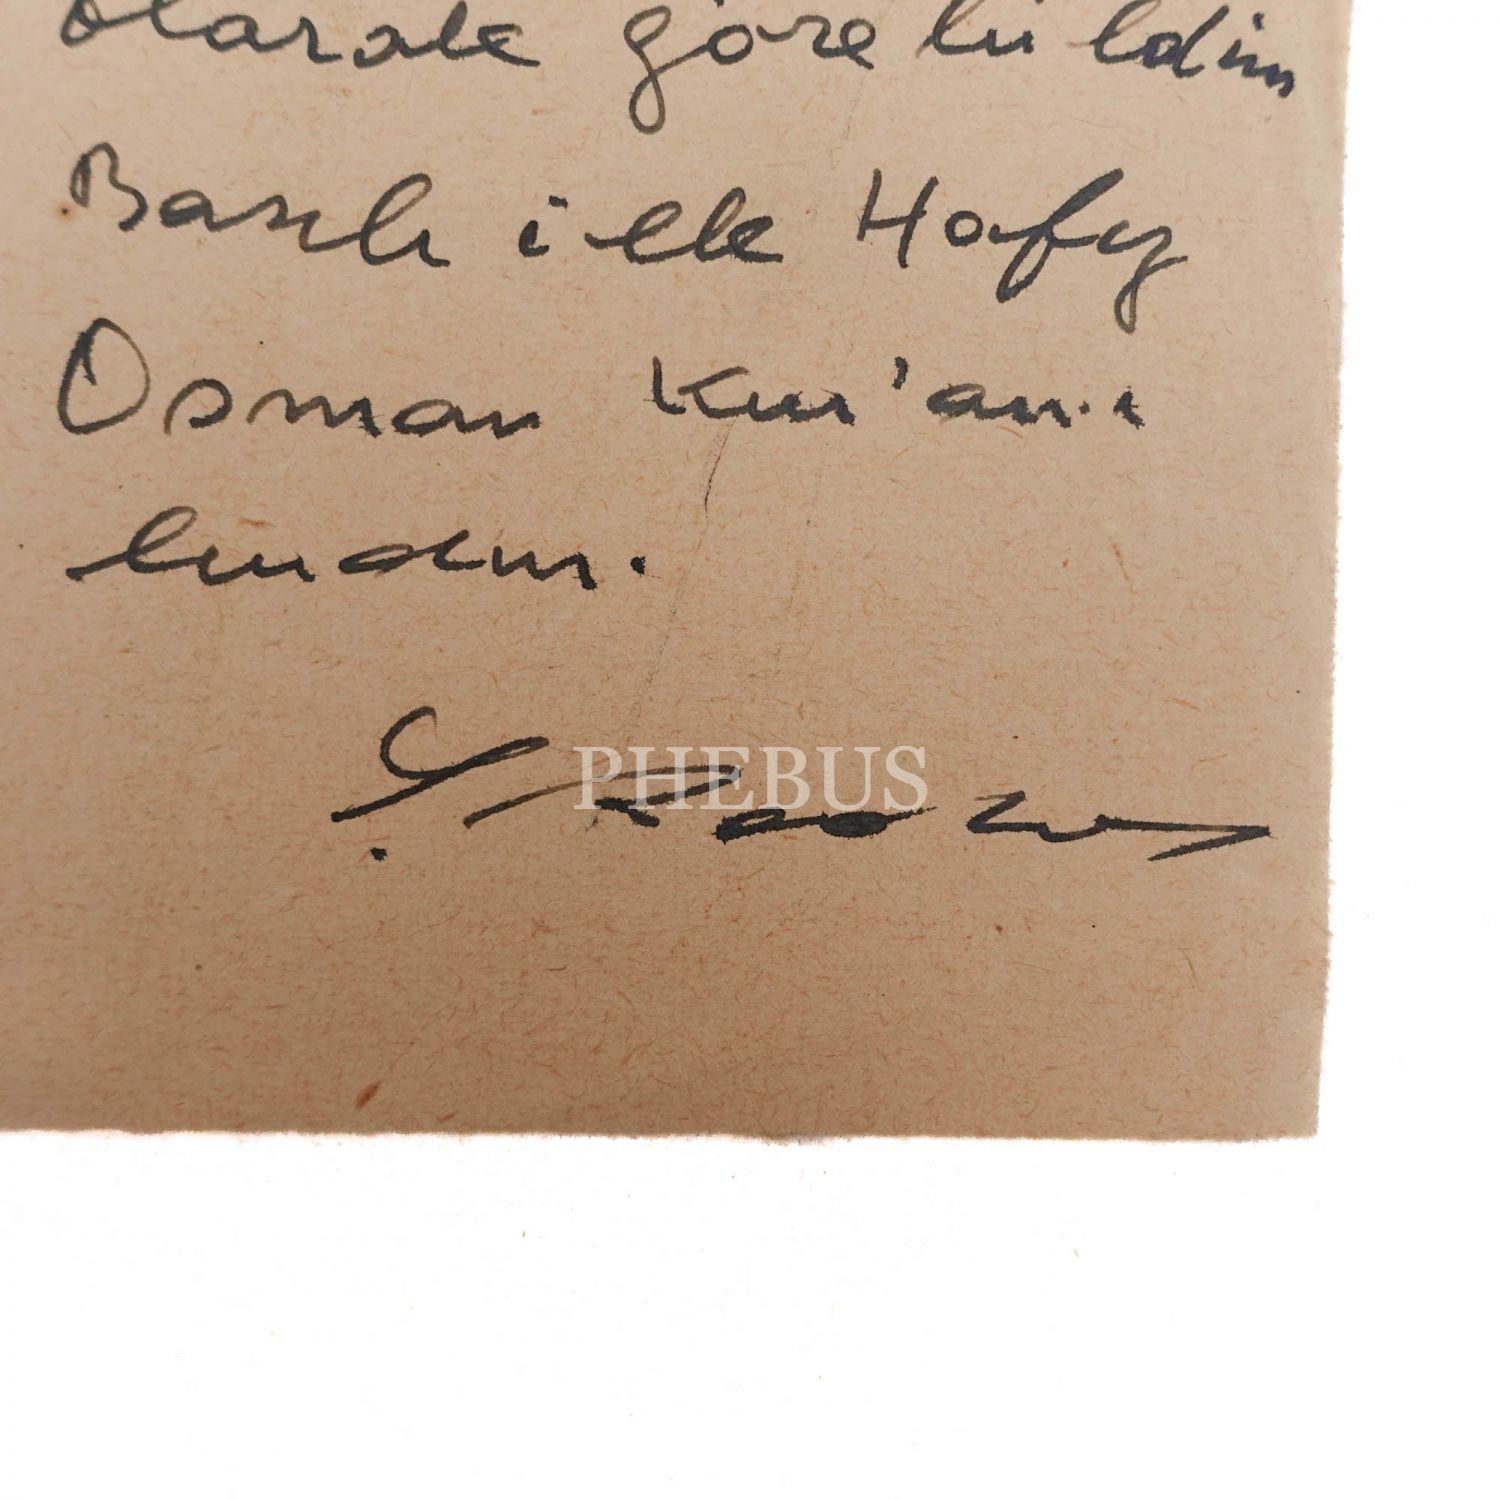 olarak görebildim
Basılı ilk Hafız
Osman Kur'an-ı
budur.
PHEBUS